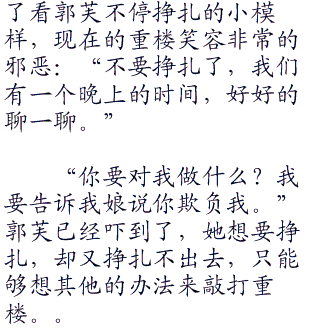 了看郭芙不停挣扎的小模
样，现在的重楼笑容非常的
邪恶：“不要挣扎了，我们
有一个晚上的时间，好好的
聊一聊。”
“你要对我做什么？我
要告诉我娘说你欺负我。”
郭芙已经吓到了，她想要挣
扎，却又挣扎不出去，只能
够想其他的办法来敲打重
楼。。